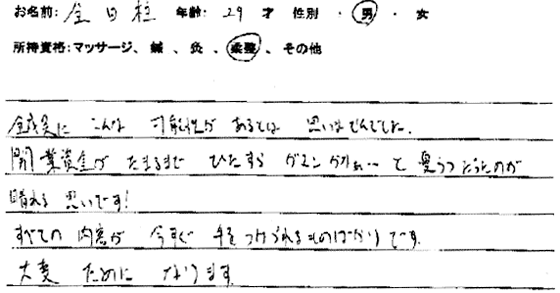 お名前: 金日柱 年齢: 29 才 性別 ・男・女
所持資格:マッサージ、鍼、灸、柔整、その他
にこんな可能性があるとは思いませんでした.
開業資金がたまるまでひたすらガマンかぁ…と憂うつだったのが
晴れる思いです!
すべての内容が今すぐ手をつけられるものばかりです.
大変ためになります.